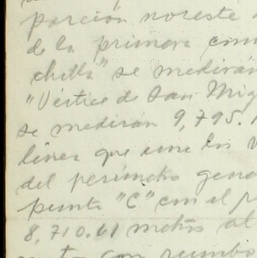 porción noreste
de la primera
chilla" se medirán
"Vértice de San Mig
se medirán 9,795.
línea que une los
del perímetro gene
punto "C" con el p
8,710.61 metros al
con rumbo